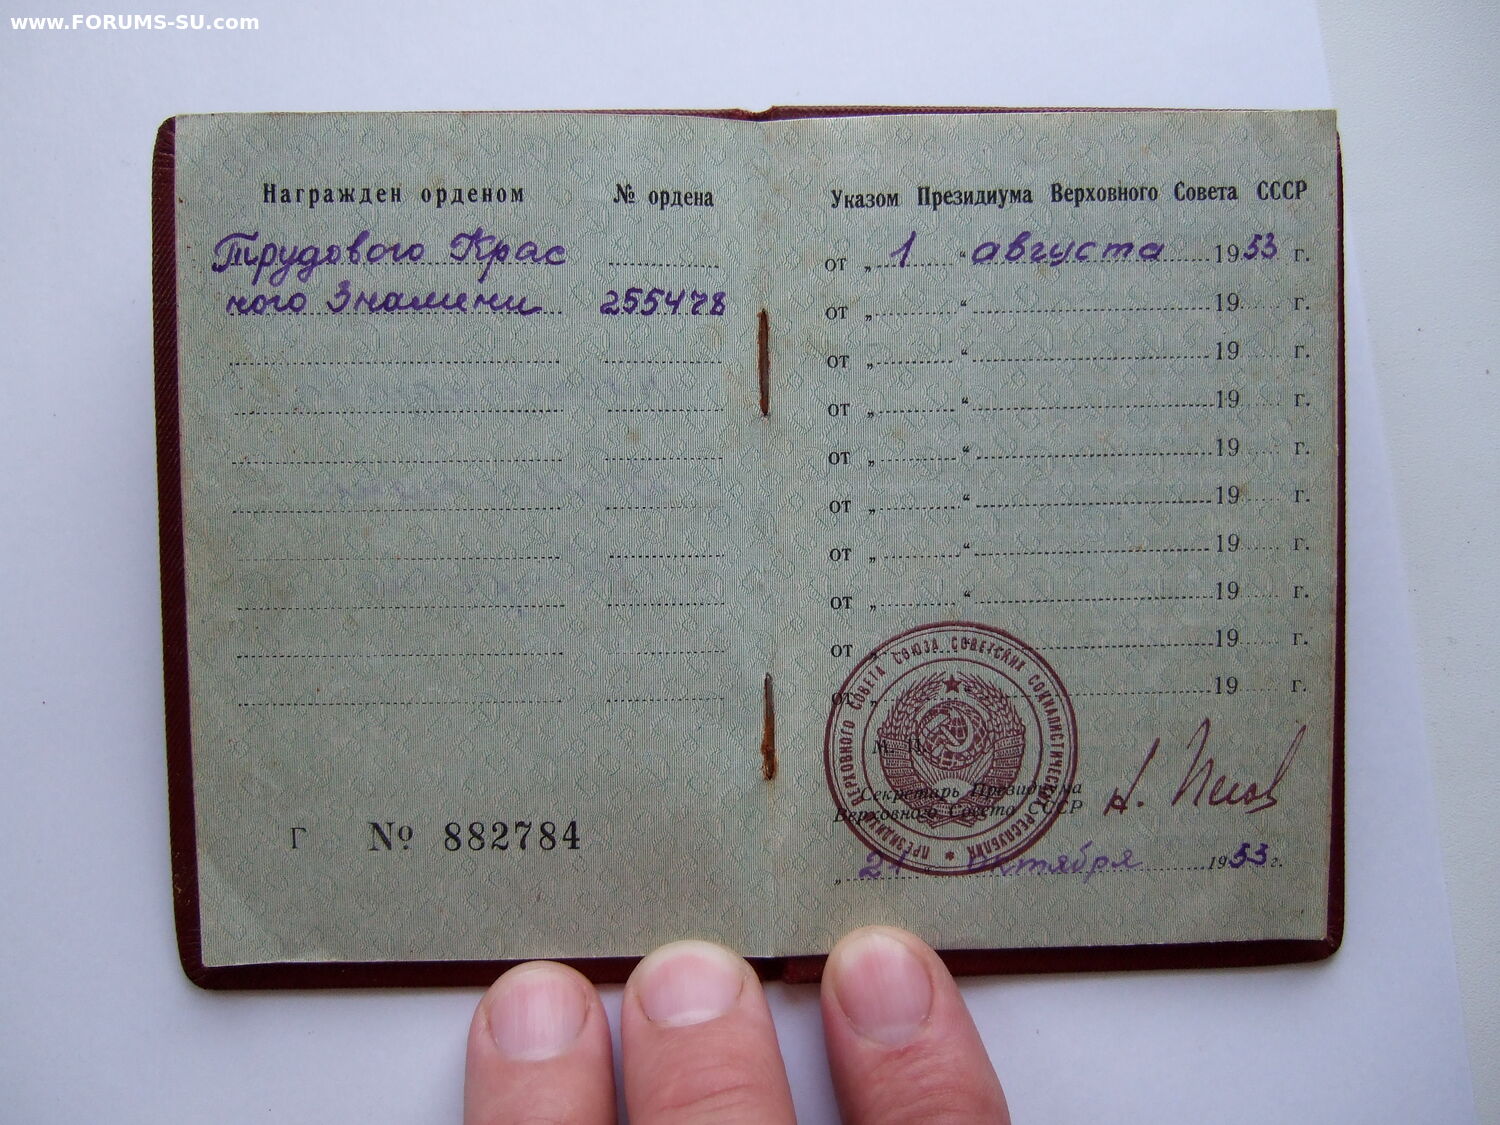 www.FORUMS-SU.com
Награжден орденом № ордена
Трудового Крас
ного Знамени 255478
Г № 882784
Указом Президиума Верховного Совета СССР
от „ 1 “ августа 1953 г.
от „ “ 19 г.
от „ “ 19 г.
от „ “ 19 г.
от „ “ 19 г.
от „ “ 19 г.
от „ “ 19 г.
от „ “ 19 г.
от „ “ 19 г.
от „ “ 19 г.
М. П.
Секретарь Президиума
Верховного Совета СССР
Н. Пегов
„ 21 “ октября 1953 г.
ПРЕЗИДИУМ ВЕРХОВНОГО СОВЕТА СОЮЗА СОВЕТСКИХ СОЦИАЛИСТИЧЕСКИХ РЕСПУБЛИК